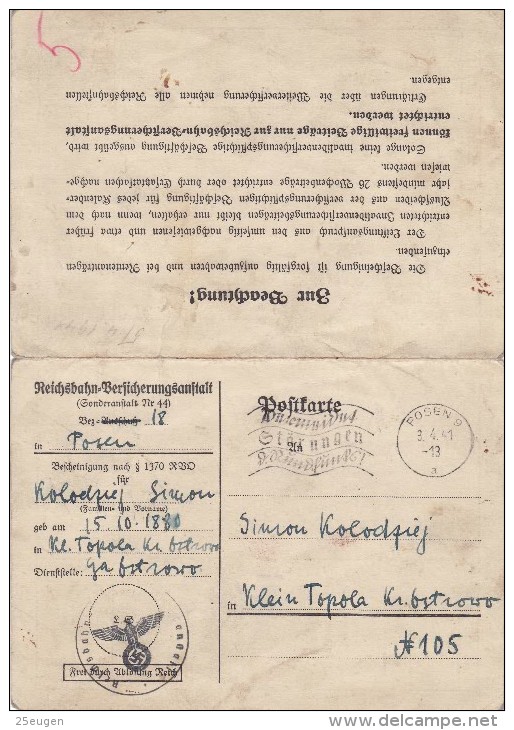 5
Zur Beachtung!
Die Bescheinigung ist sorgfältig aufzubewahren und bei Rentenanträgen
einzusenden.
Der Leistungsanspruch aus den umseitig nachgewiesenen und etwa früher
entrichteten Invalidenversicherungsbeiträgen bleibt nur erhalten, wenn nach dem
Ausscheiden aus der versicherungspflichtigen Beschäftigung für jedes Kalender-
jahr mindestens 26 Wochenbeiträge entrichtet oder durch Ersatztatsachen nachge-
wiesen werden.
Solange keine invalidenversicherungspflichtige Beschäftigung ausgeübt wird,
können freiwillige Beiträge nur zur Reichsbahn-Versicherungsanstalt
entrichtet werden.
Erklärungen über die Weiterversicherung nehmen alle Reichsbahnstellen
entgegen.
Reichsbahn-Versicherungsanstalt
(Sonderanstalt Nr 44)
Bez-Ausschuß 18
in Posen
Bescheinigung nach § 1370 RVO
für
Kolodziej Simon
(Familien- und Vorname)
geb am 15.10.1880
in Kl. Topola Kr. Ostrowo
Dienststelle: Ga Ostrowo
Reichsbahn
Frei durch Ablösung Reich
Postkarte
Vermeidet
Störungen
d. Rundfunks!
An
POSEN 9
3.4.41
-13
a
Simon Kolodziej
in Klein Topola Kr. Ostrowo
№ 105
25eugen
delcampe.net